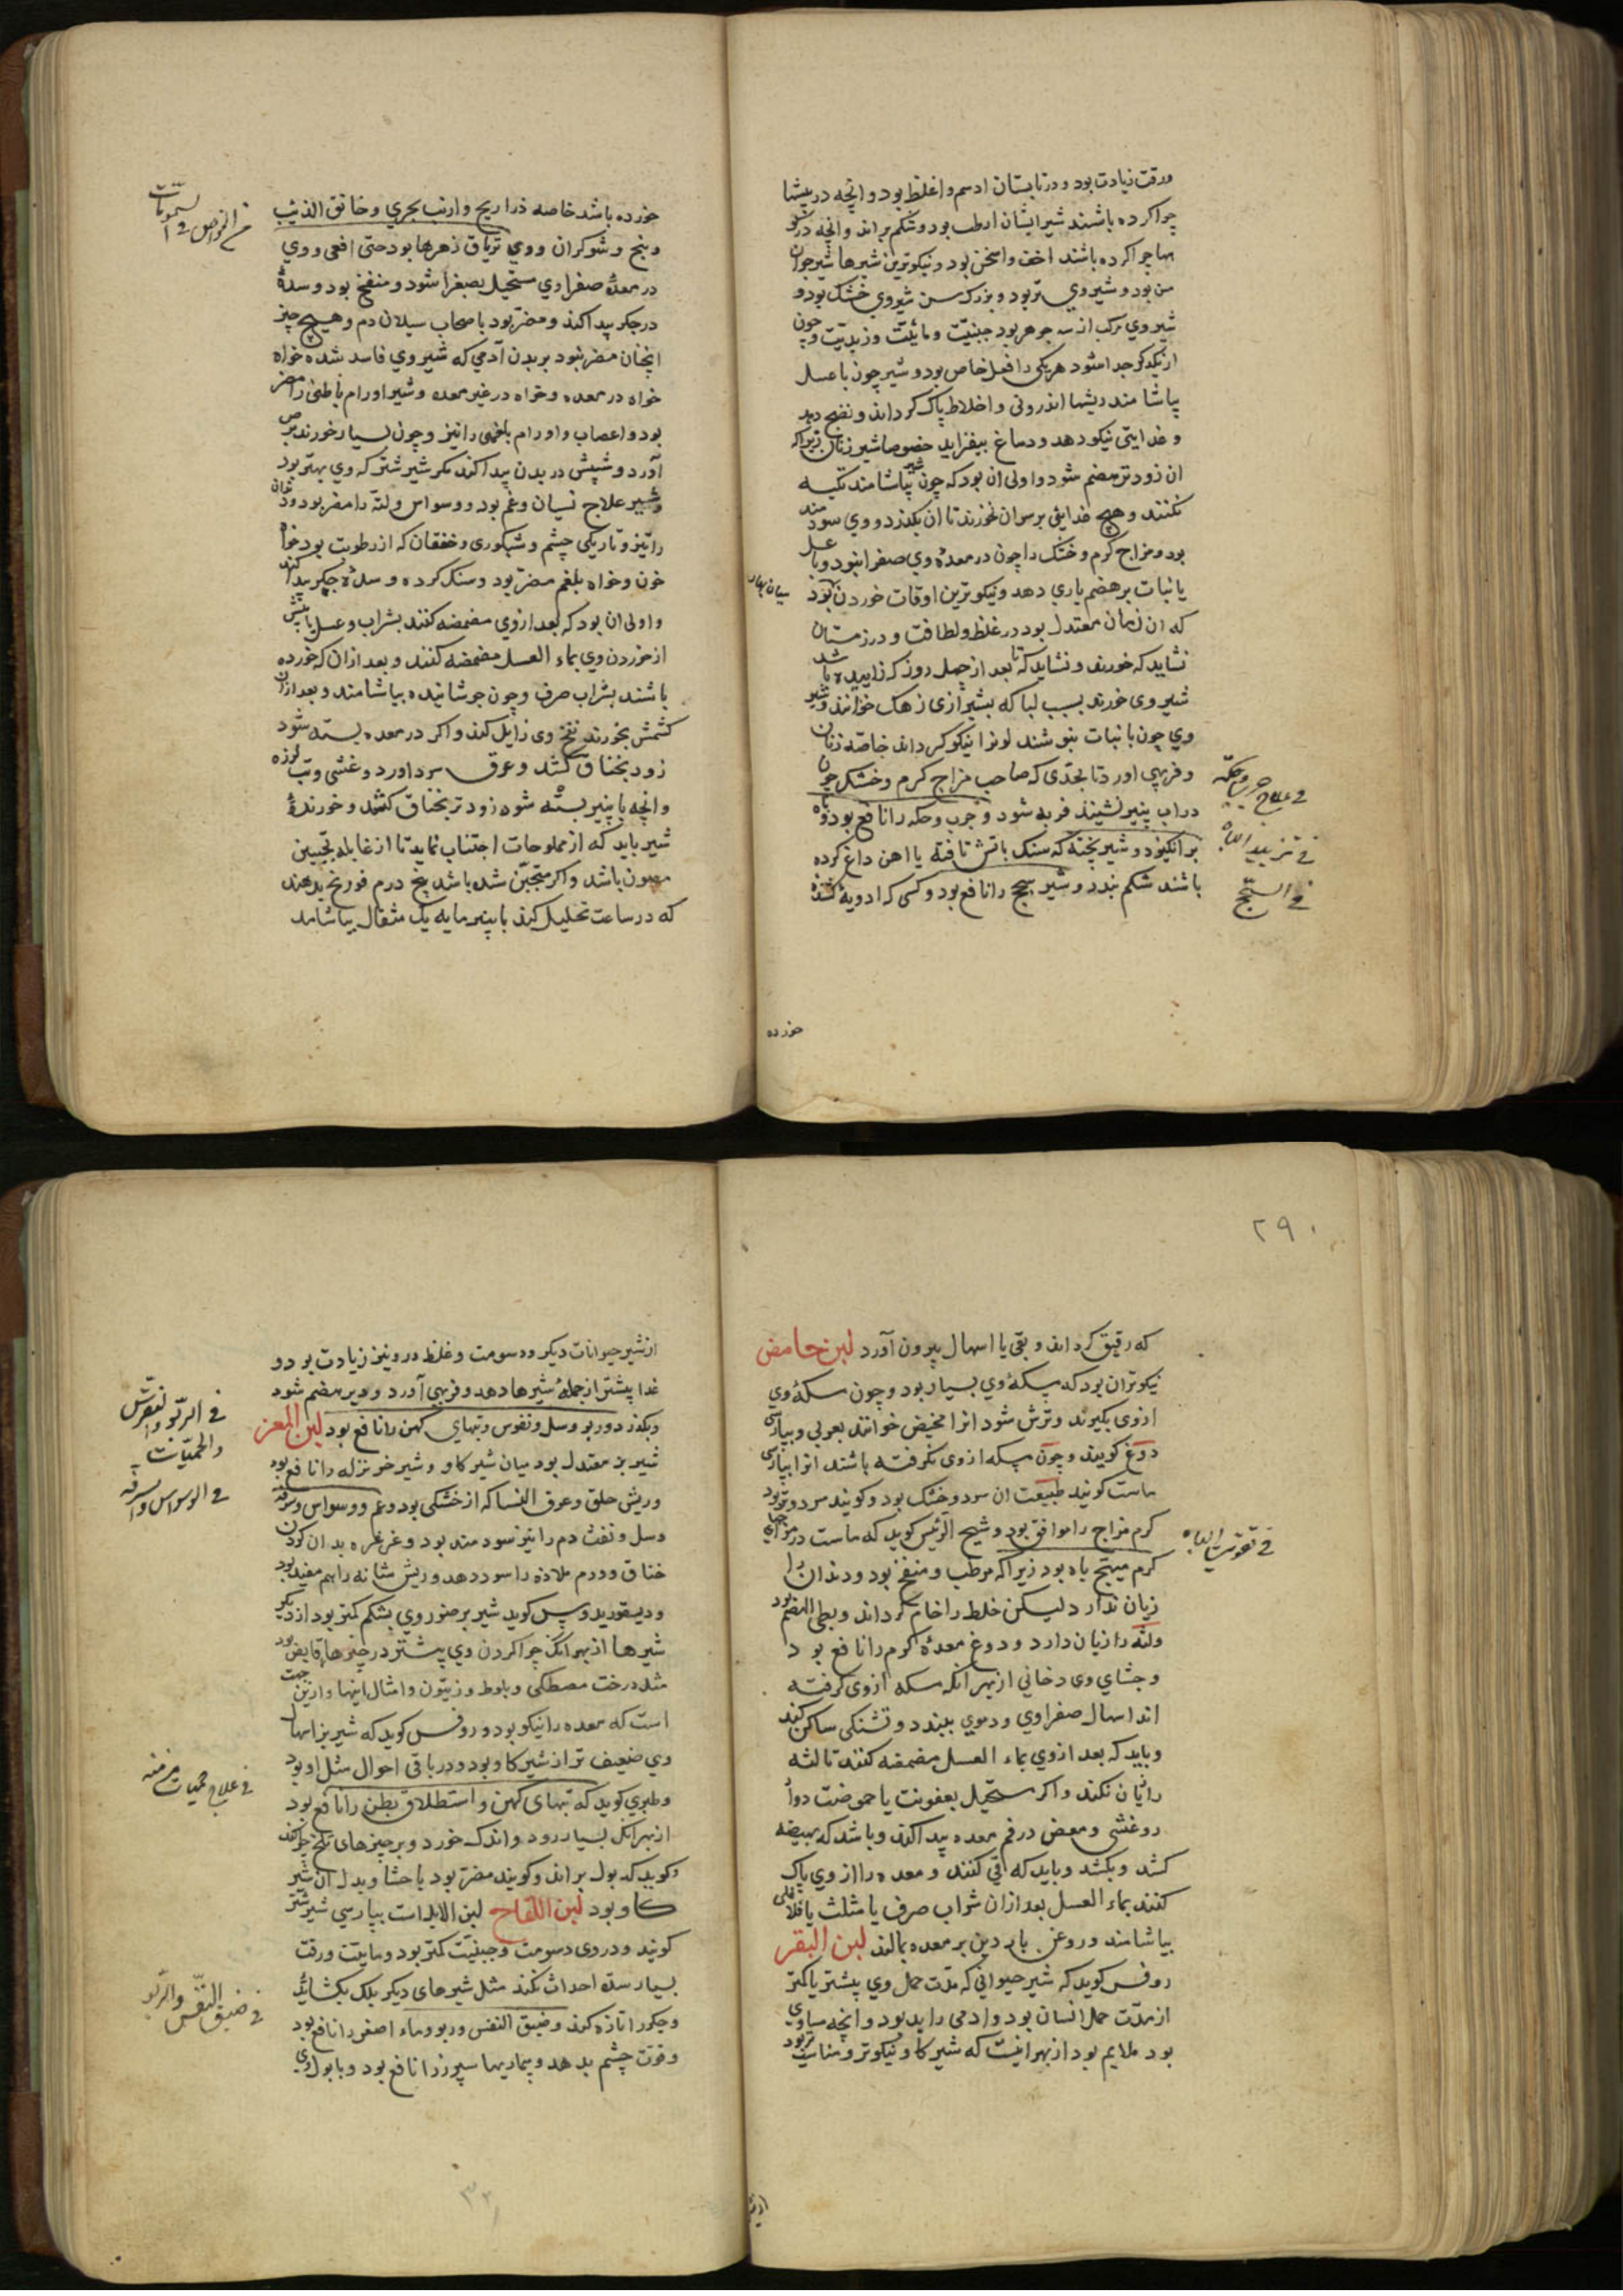 ورقت زیادت بود و در تابستان ادسم و اغلظ بود و انچه در بیشها
چرا کرده باشند شیر ایشان ارطب بود و شکم براند و انچه در
چرا کرده باشند اخف و اسخن بود و نیکوترین شیرها شیر جوان
سن بود و شیر وی تر بود و بزرک سن شیر وی خشک بود و
شیر وی مرکب از سه جوهر بود جبنیّت و مائیّت و زبدیّت و چون
از یکدیگر جدا شود هر یکی را فعل خاص بود و شیر چون با عسل
بیاشامند ریشها اندرونی و اخلاط پاک کرداند و نضج دهد
و غذایتی نیکو دهد و دماغ بیفزاید خصوصا شیر زنان زیراکه
ان زودتر هضم شود و اولی ان بود که چون شیر بیاشامند تکیه
نکنند و هیچ غذایی بر سر ان نخورند تا ان بکذرد و وی سودمند
بود و مزاج کرم و خشک را چون در معدهٔ وی صفرا نبود و با عسل
یا نبات بر هضم یاری دهد و نیکوترین اوقات خوردن
میان بهار
که ان زمان معتدل بود در غلظ و لطافت و در زمستان
نشاید که خورند و نشاید که تا بعد از چهل روز که زاییده باشد
شیر وی خورند بسبب لبا که بشیرازی زهک خوانند و شیر
وی چون با نبات بنوشند لونرا نیکو کرداند خاصّه زنان
و فربهی اورد تا بحدّی که صاحب مزاج کرم و خشک چون
در اب پنیر نشیند فربه شود و جرب و حکه را نافع بود و باه
برانکیزد و شیر پخته که سنک باتش تافته یا اهن داغ کرده
باشند شکم ببندد و شیر سحج را نافع بود و کسی که ادویهٔ کشنده
فی علاج جرب و حکّه
فی تزیید الباه
فی السحج
خورده
خورده باشد خاصه ذراریح و ارنب بحری و خانق الذئب
و بنج و شوکران و وی تریاق زهرها بود حتی افعی و وی
در معدهٔ صفراوی مستحیل بصفرا شود و منفخ بود و سدهٔ
در جکر پیدا کند و مضر بود باصحاب سیلان دم و هیچ چیز
انچنان مضر نبود ببدن آدمی که شیر وی فاسد شده خواه
خواه در معده و خواه در غیر معده و شیر اورام باطنی را مضر
بود و اعصاب و اورام بلغمی را نیز و چون بسیار خورند برص
آرد و شپش در بدن پیدا کند مکر شیر شتر که وی بهتر بود
و شیر علاج نسیان و غم بود و وسواس و لثه را مضر بود و دندان
را نیز و تاریکی چشم و شبکوری و خفقان که از رطوبت بود خواه
خون و خواه بلغم مضر بود و سنک کرده و سدهٔ جکر پیدا کند
و اولی ان بود که بعد از وی مضمضه کنند بشراب و عسل یا پیش
از خوردن وی بماء العسل مضمضه کنند و بعد از ان که خورده
باشند بشراب صرف و چون جوشانیده بیاشامند و بعد از ان
کشمش بخورند نفخ وی زایل کند و اکر در معده بسته شود
زود بخناق کشد و عرق سرد اورد و غشی و تب لرزه
و انچه با پنیر بسته شود زودتر بخناق کشد و خورندهٔ
شیر باید که از مملوحات اجتناب نماید تا از غایلهٔ تجبین
مصون باشد و اکر متجبّن شده باشد پنج درم فوتنج بدهند
که در ساعت تحلیل کند یا پنیر مایه یک مثقال بیاشامد
فی الخواص و السمومات
٢٩٠
که رقیق کرداند و بقی یا اسهال بیرون آورد لبن حامض
نیکوتران بود که سکهٔ وی بسیار بود و چون سکهٔ وی
ازوی بکیرند و ترش شود انرا مخیض خوانند بعربی و بپارسی
دوغ کویند و چون سکه ازوی نکرفته باشند انرا بپارسی
ماست کویند طبیعت ان سرد و خشک بود و کویند سرد و تر بود
کرم مزاج را موافق بود و شیخ الرئیس کوید که ماست در مزاجهای
کرم مهیّج باه بود زیرا که مرطب و منفخ بود و دندان را
زیان ندارد لیکن خلط را خام کرداند و بطی الهضم بود
و لثه را زیان دارد و دوغ معدهٔ کرم را نافع بود
و جشای وی دخانی از بهر انکه سکه ازوی کرفته
اند اسهال صفراوی و دموی ببندد و تشنکی ساکن کند
و باید که بعد ازوی بماء العسل مضمضه کنند تا لثه
را زیان نکند و اکر مستحیل بعفونت یا حموضت
و غشی و مغص در فم معده پیدا کند و باشد که بهیضه
کشد و بکشد و باید که قی کنند و معده را ازوی پاک
کنند بماء العسل بعد از ان شراب صرف یا مثلث یا
بیاشامند و روغن باردین بر معده بمالند لبن البقر
روفس کوید که شیر حیوانی که مدّت حمل وی بیشتر یا کمتر
از مدّت حمل انسان بود و ادمی را بد بود و انچه مساوی
بود ملایم بود از بهر اینست که شیر کاو نیکوتر و مناسب‌تر بود
فی تقویت الباه
از شیر
از شیر حیوانات دیکر و دسومت و غلظ در وی نیز زیادت بود و
غذا بیشتر از جملهٔ شیرها دهد و فربهی آورد و دیر هضم شود
و بکذرد و ربو و سل و نقرس و تبهای کهن را نافع بود لبن المعز
شیر بز معتدل بود میان شیر کاو و شیر خر نزله را نافع بود
و ریش حلق و عرق النسا که از خشکی بود و غم و وسواس و سرفه
و سل و نفث دم را نیز سودمند بود و غرغره بدان کردن
خناق و ورم ملاذه را سود دهد و ریش مثانه را هم مفید بود
و دیسقوریدوس کوید شیر بز ضرر وی بشکم کمتر بود از دیکر
شیرها از بهر انک چرا کردن وی بیشتر در چیزها قابض بود
مثل درخت مصطکی و بلوط و زیتون و امثال اینها و ازین جهت
است که معده را نیکو بود و روفس کوید که شیر بز اسهال
وی ضعیف تر از شیر کاو بود و در باقی احوال مثل او بود
و طبری کوید که تبهای کهن و استطلاق بطن را نافع بود
از بهر انک بسیار رود و اندک خورد و بر چیزهای تلخ چرا کند
و کوید که بول براند و کویند مضر بود باحشا و بدل ان شیر
کاو بود لبن اللقاح لبن الابل است بپارسی شیر شتر
کویند و در وی دسومت و جبنیّت کمتر بود و مایّیت و رقت
بسیار سده احداث نکند مثل شیرهای دیکر بلک بکشاید
و جکر را تازه کند و ضیق النفس و ربو و ماء اصفر را نافع بود
و قوت چشم بدهد و بیماریها سپرز را نافع بود و با بول وی
فی الربو و النقرس
و الحمیّات
فی الوسواس و السرفه
فی علاج حمیات مزمنه
فی ضیق النفس و الربو